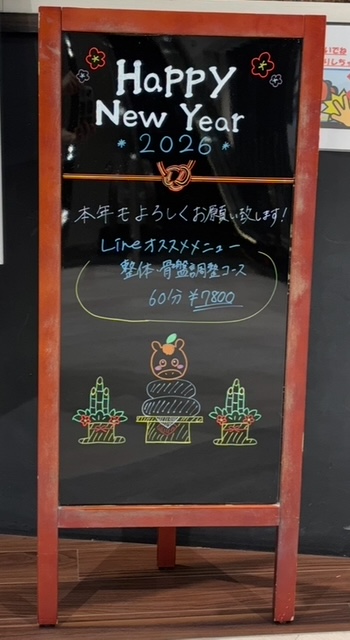 Happy
New Year
*2026*
本年もよろしくお願い致します!
Lineオススメメニュー
整体・骨盤調整コース
60分 ¥7800